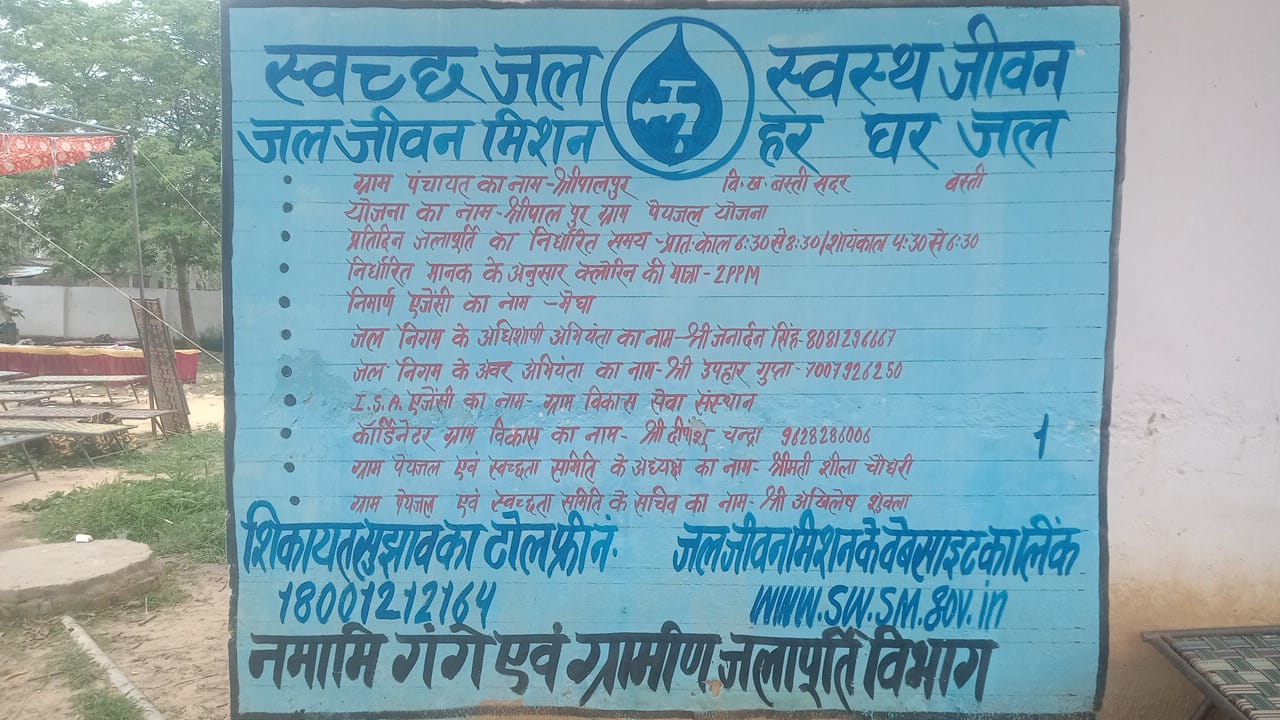 स्वच्छ जल स्वस्थ जीवन
जल जीवन मिशन हर घर जल
ग्राम पंचायत का नाम-श्रीपालपुर वि.ख. बस्ती सदर बस्ती
योजना का नाम-श्रीपाल पुर ग्राम पेयजल योजना
प्रतिदिन जलापूर्ति का निर्धारित समय -प्रात:काल 6:30 से 8:30/शायंकाल 4:30 से 6:30
निर्धारित मानक के अनुसार क्लोरिन की मात्रा - 2PPM
निमार्ण एजेंसी का नाम - मेघा
जल निगम के अधिशाषी अभियंता का नाम-श्री जनार्दन सिंह-8081296667
जल निगम के अवर अभियंता का नाम-श्री उपहार गुप्ता-7007926250
I.S.A. एजेंसी का नाम- ग्राम विकास सेवा संस्थान
कॉर्डिनेटर ग्राम विकास का नाम- श्री दीपांशु चन्द्रा 9628286006
ग्राम पेयजल एवं स्वच्छता समिति के अध्यक्ष का नाम- श्रीमती शीला चौधरी
ग्राम पेयजल एवं स्वच्छता समिति के सचिव का नाम- श्री अखिलेष शुक्ला
1
शिकायत सुझाव का टोल फ्री नं. जल जीवन मिशन के वेबसाइट का लिंक
18001212164 WWW.SW.SM.gov.in
नमामि गंगे एवं ग्रामीण जलापूर्ति विभाग